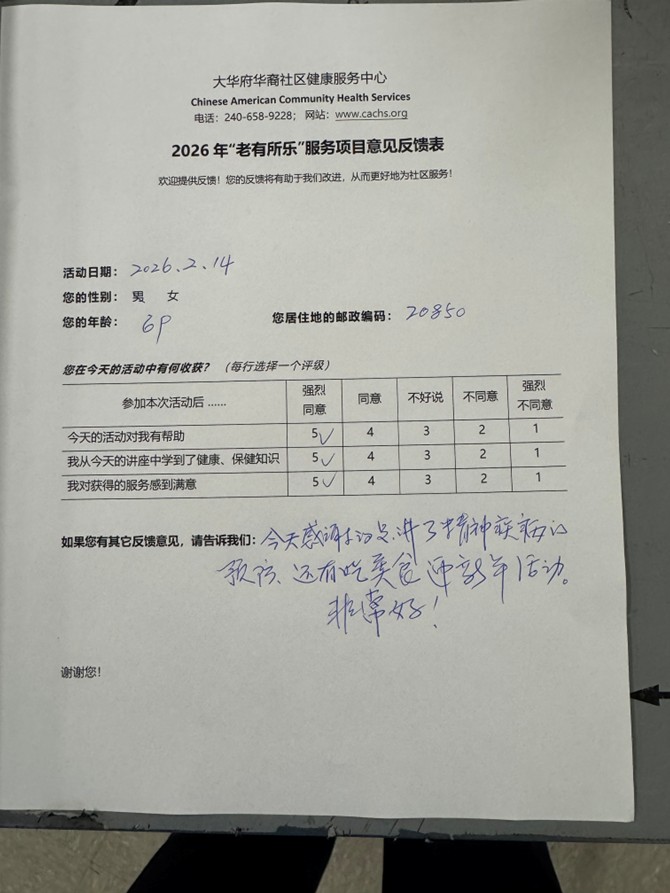 大华府华裔社区健康服务中心
Chinese American Community Health Services
电话：240-658-9228； 网站：www.cachs.org
2026 年“老有所乐”服务项目意见反馈表
欢迎提供反馈！您的反馈将有助于我们改进，从而更好地为社区服务！
活动日期： 2026.2.14
您的性别： 男 女
您的年龄： 69 您居住地的邮政编码： 20850
您在今天的活动中有何收获？ （每行选择一个评级）
参加本次活动后 …… 强烈同意 同意 不好说 不同意 强烈不同意
今天的活动对我有帮助 5✓ 4 3 2 1
我从今天的讲座中学到了健康、保健知识 5✓ 4 3 2 1
我对获得的服务感到满意 5✓ 4 3 2 1
如果您有其它反馈意见，请告诉我们： 今天感谢 讲了精神疾病的
预防、还有吃美食迎新年活动。
非常好！
谢谢您！